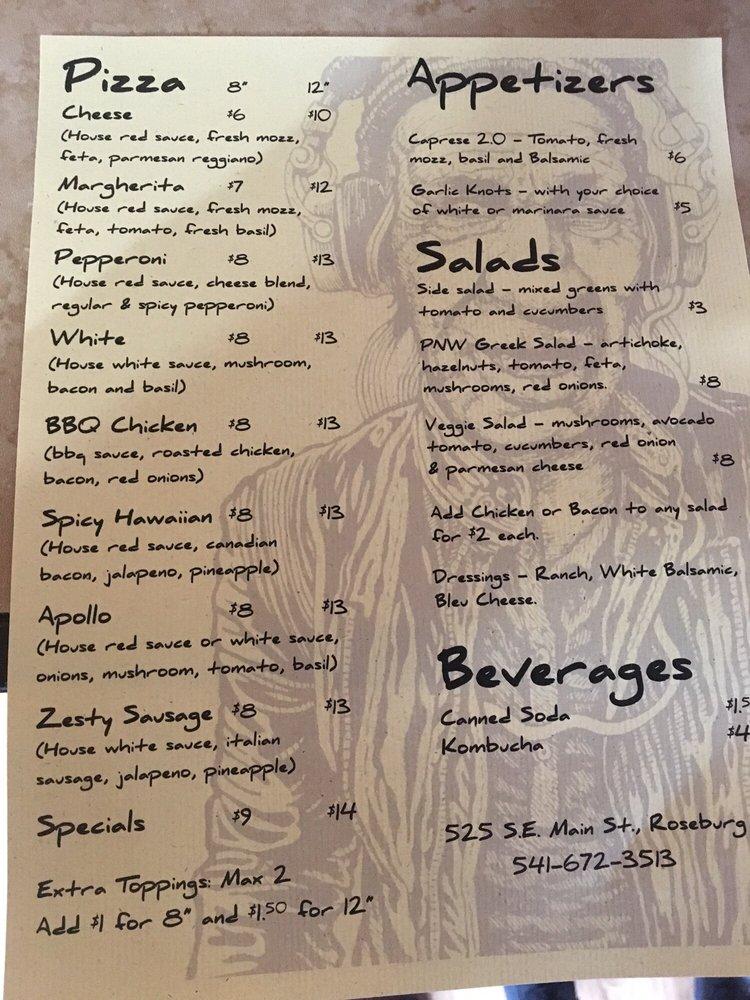 Pizza 8" 12"
Cheese $6 $10
(House red sauce, fresh mozz,
feta, parmesan reggiano)
Margherita $7 $12
(House red sauce, fresh mozz,
feta, tomato, fresh basil)
Pepperoni $8 $13
(House red sauce, cheese blend,
regular & spicy pepperoni)
White $8 $13
(House white sauce, mushroom,
bacon and basil)
BBQ Chicken $8 $13
(bbq sauce, roasted chicken,
bacon, red onions)
Spicy Hawaiian $8 $13
(House red sauce, canadian
bacon, jalapeno, pineapple)
Apollo $8 $13
(House red sauce or white sauce,
onions, mushroom, tomato, basil)
Zesty Sausage $8 $13
(House white sauce, italian
sausage, jalapeno, pineapple)
Specials $9 $14
Extra Toppings: Max 2
Add $1 for 8" and $1.50 for 12"
Appetizers
Caprese 2.0 - Tomato, fresh
mozz, basil and Balsamic $6
Garlic Knots - with your choice
of white or marinara sauce $5
Salads
Side salad - mixed greens with
tomato and cucumbers $3
PNW Greek Salad - artichoke,
hazelnuts, tomato, feta,
mushrooms, red onions. $8
Veggie Salad - mushrooms, avocado
tomato, cucumbers, red onion
& parmesan cheese $8
Add Chicken or Bacon to any salad
for $2 each.
Dressings - Ranch, White Balsamic,
Bleu Cheese.
Beverages
Canned Soda
Kombucha $4
525 S.E. Main St., Roseburg
541-672-3513